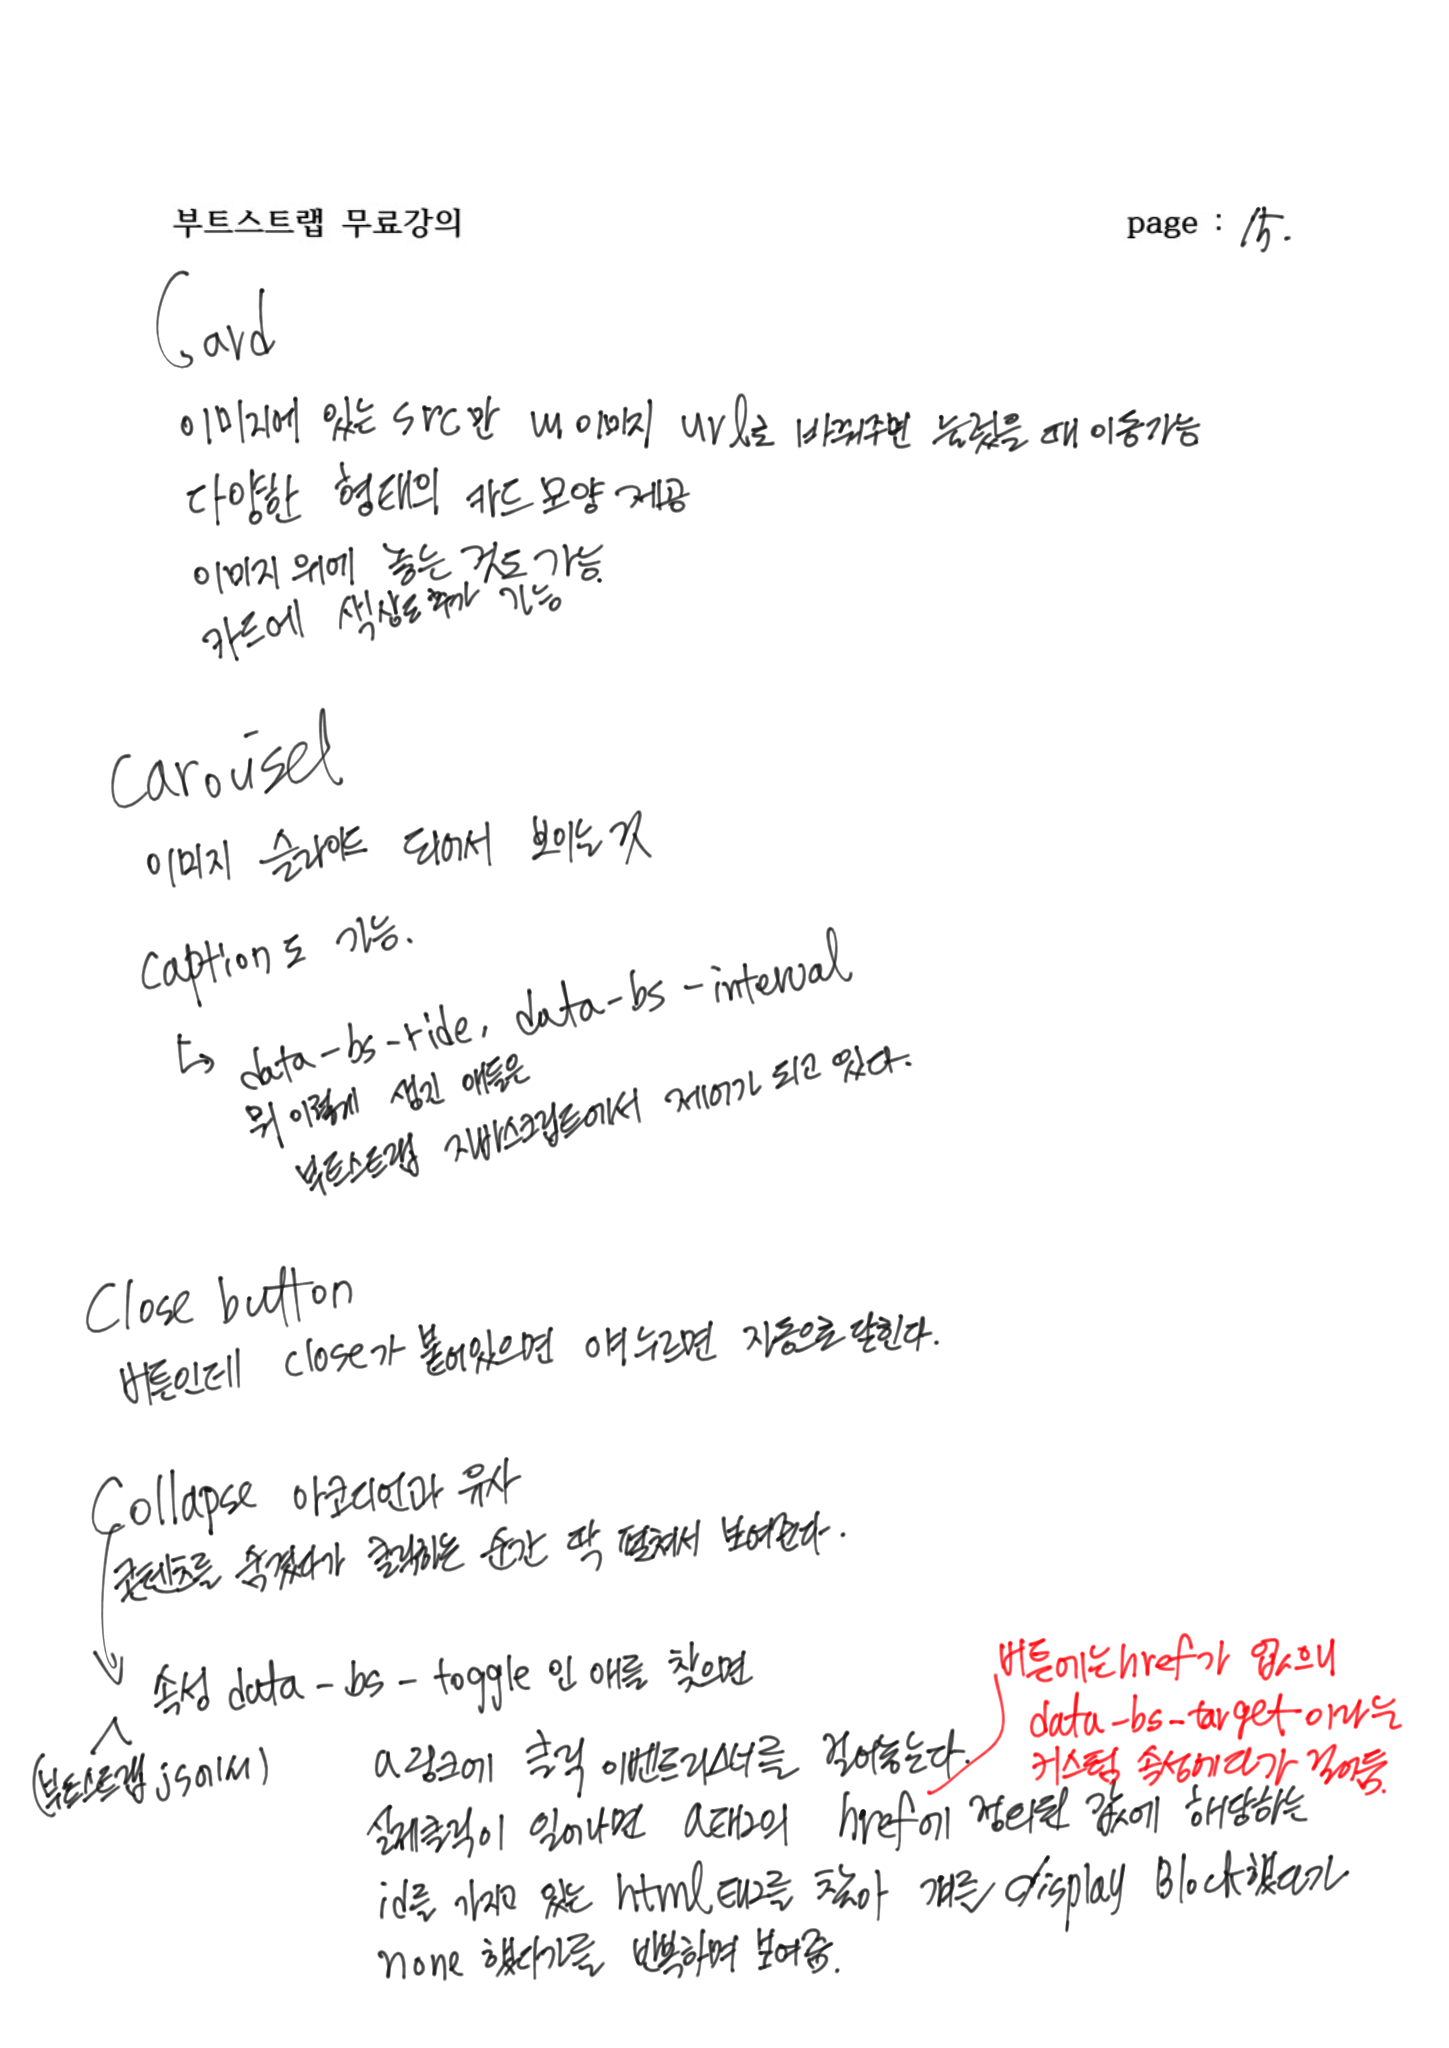 부트스트랩 무료강의
page : 15.
Card
이미지에 있는 src만 내 이미지 url로 바꿔주면 눌렀을 때 이동가능
다양한 형태의 카드 모양 제공
이미지 위에 놓는 것도 가능.
카드에 색상도 추가 가능
Carousel
이미지 슬라이드 되어서 보이는 것
caption도 가능.
↳ data-bs-ride, data-bs-interval
뭐 이렇게 생긴 애들은
부트스트랩 자바스크립트에서 제어가 되고 있다.
Close button
버튼인데 close가 붙어있으면 얘 누르면 자동으로 닫힌다.
Collapse 아코디언과 유사
콘텐츠를 숨겼다가 클릭하는 순간 딱 펼쳐서 보여준다.
속성 data-bs-toggle 인 애를 찾으면
(부트스트랩 js에서)
a링크에 클릭 이벤트리스너를 걸어놓는다.
버튼에는 href가 없으니
data-bs-target이라는
커스텀 속성에다가 걸어둠.
실제클릭이 일어나면 a태그의 href에 정의된 값에 해당하는
id를 가지고 있는 html태그를 찾아 걔를 display Block했다가
none 했다가를 반복하며 보여줌.